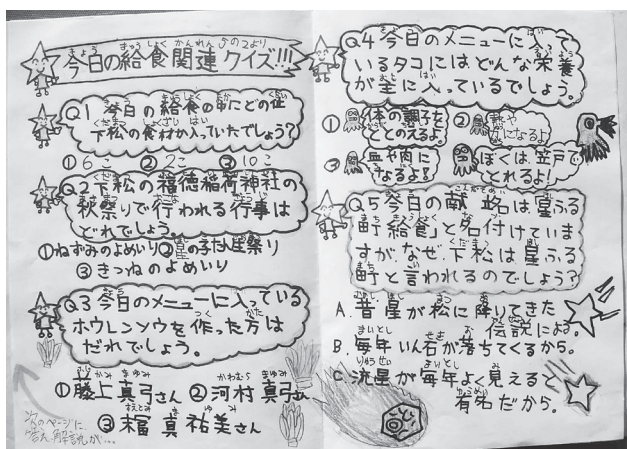 今日の給食関連クイズ!!!
5の2より
Q1 今日の給食の中にどの位
下松の食材が入っていたでしょう?
①6こ ②2こ ③10こ
Q2 下松の福徳稲荷神社の
秋祭りで行われる行事は
どれでしょう。
①ねずみのよめいり ②星の子たん生祭り
③きつねのよめいり
Q3 今日のメニューに入っている
ホウレンソウを作った方は
だれでしょう。
①藤上真弓さん ②河村真弓さん
③末富真祐美さん
次のページに、
答え、解説が…
Q4 今日のメニューに入って
いるタコにはどんな栄養
が主に入っているでしょう。
①体の調子を
ととのえるよ。
②熱や
力になるよ
③血や肉に
なるよ!
ぼくは、笠戸で
とれるよ!
Q5 今日の献立名は「星ふる
町給食」と名付けていま
すが、なぜ、下松は星ふる
町と言われるのでしょう?
A. 昔星が松に降りてきた
伝説による。
B. 毎年いん石が落ちてくるから。
C. 流星が毎年よく見えると
有名だから。